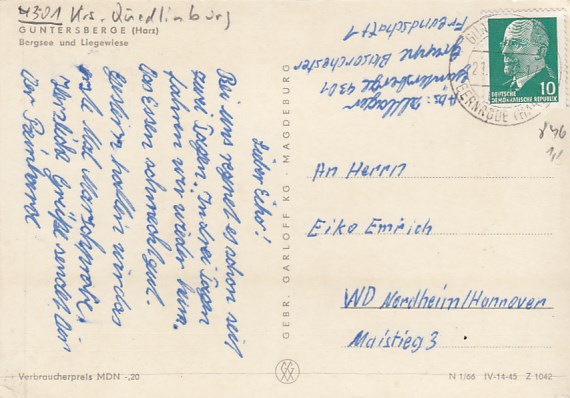 4301 Krs. Quedlinburg
GÜNTERSBERGE (Harz)
Bergsee und Liegewiese
Lieber Eiko!
Bei uns regnet es schon seit
zwei Tagen. In drei Tagen
fahren wir wieder heim.
Das Essen schmeckt gut.
Gestern hatten wir das
erste Mal Marschprobe.
Herzliche Grüße sendet Dir
Der Reinhard
GEBR. GARLOFF KG · MAGDEBURG
Abs: Zeltlager
Güntersberge 4301
Gruppe Blasorchester
Freundschaft 1
10
DEUTSCHE
DEMOKRATISCHE REPUBLIK
An Herrn
Eiko Emrich
WD Nordheim/Hannover
Maistieg 3
Verbraucherpreis MDN -,20
N 1/66 IV-14-45 Z 1042